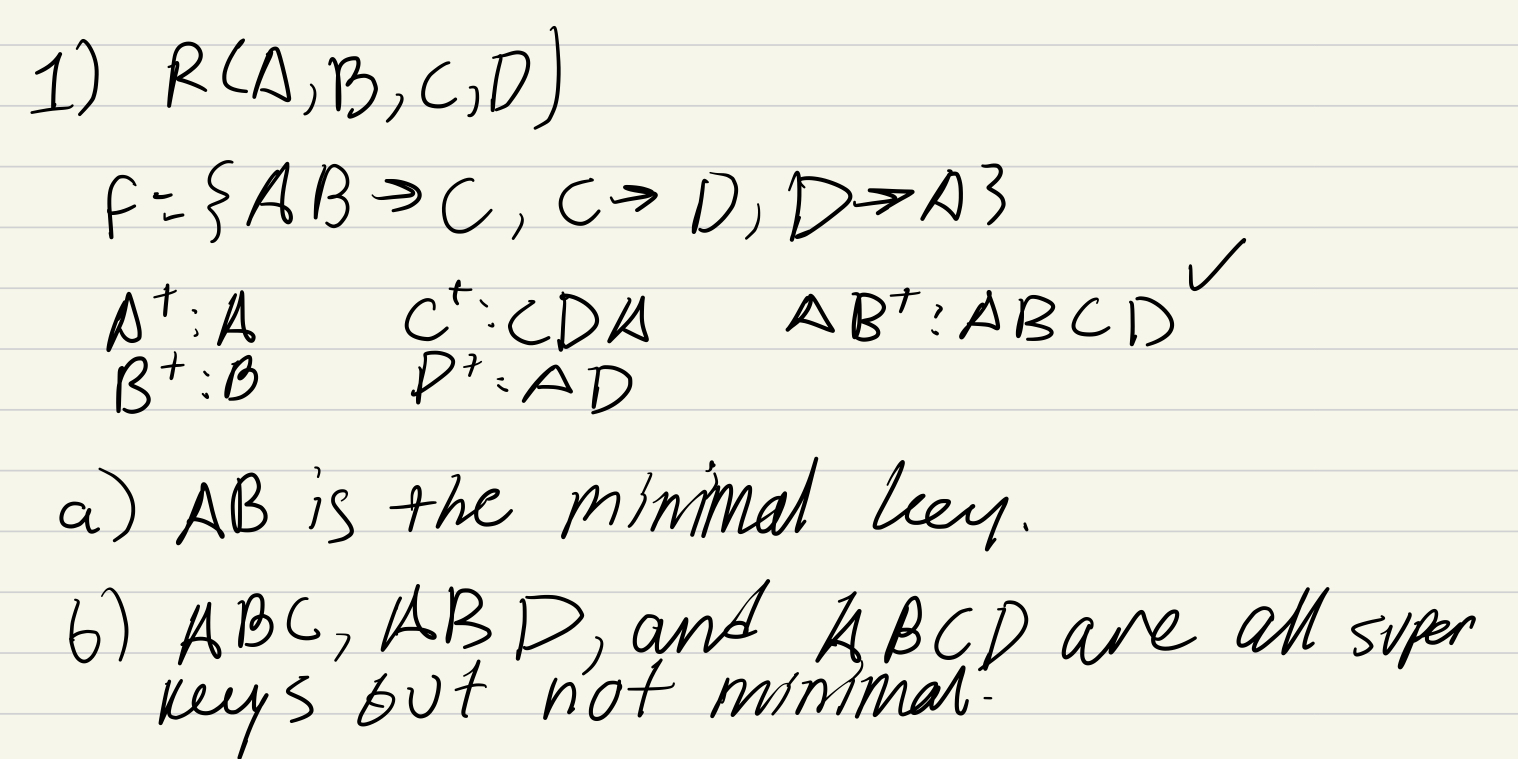 1) R(A,B,C,D)
F={AB→C, C→D, D→A}
A⁺:A C⁺:CDA AB⁺:ABCD ✓
B⁺:B D⁺:AD
a) AB is the minimal key.
b) ABC, ABD, and ABCD are all super
keys but not minimal.